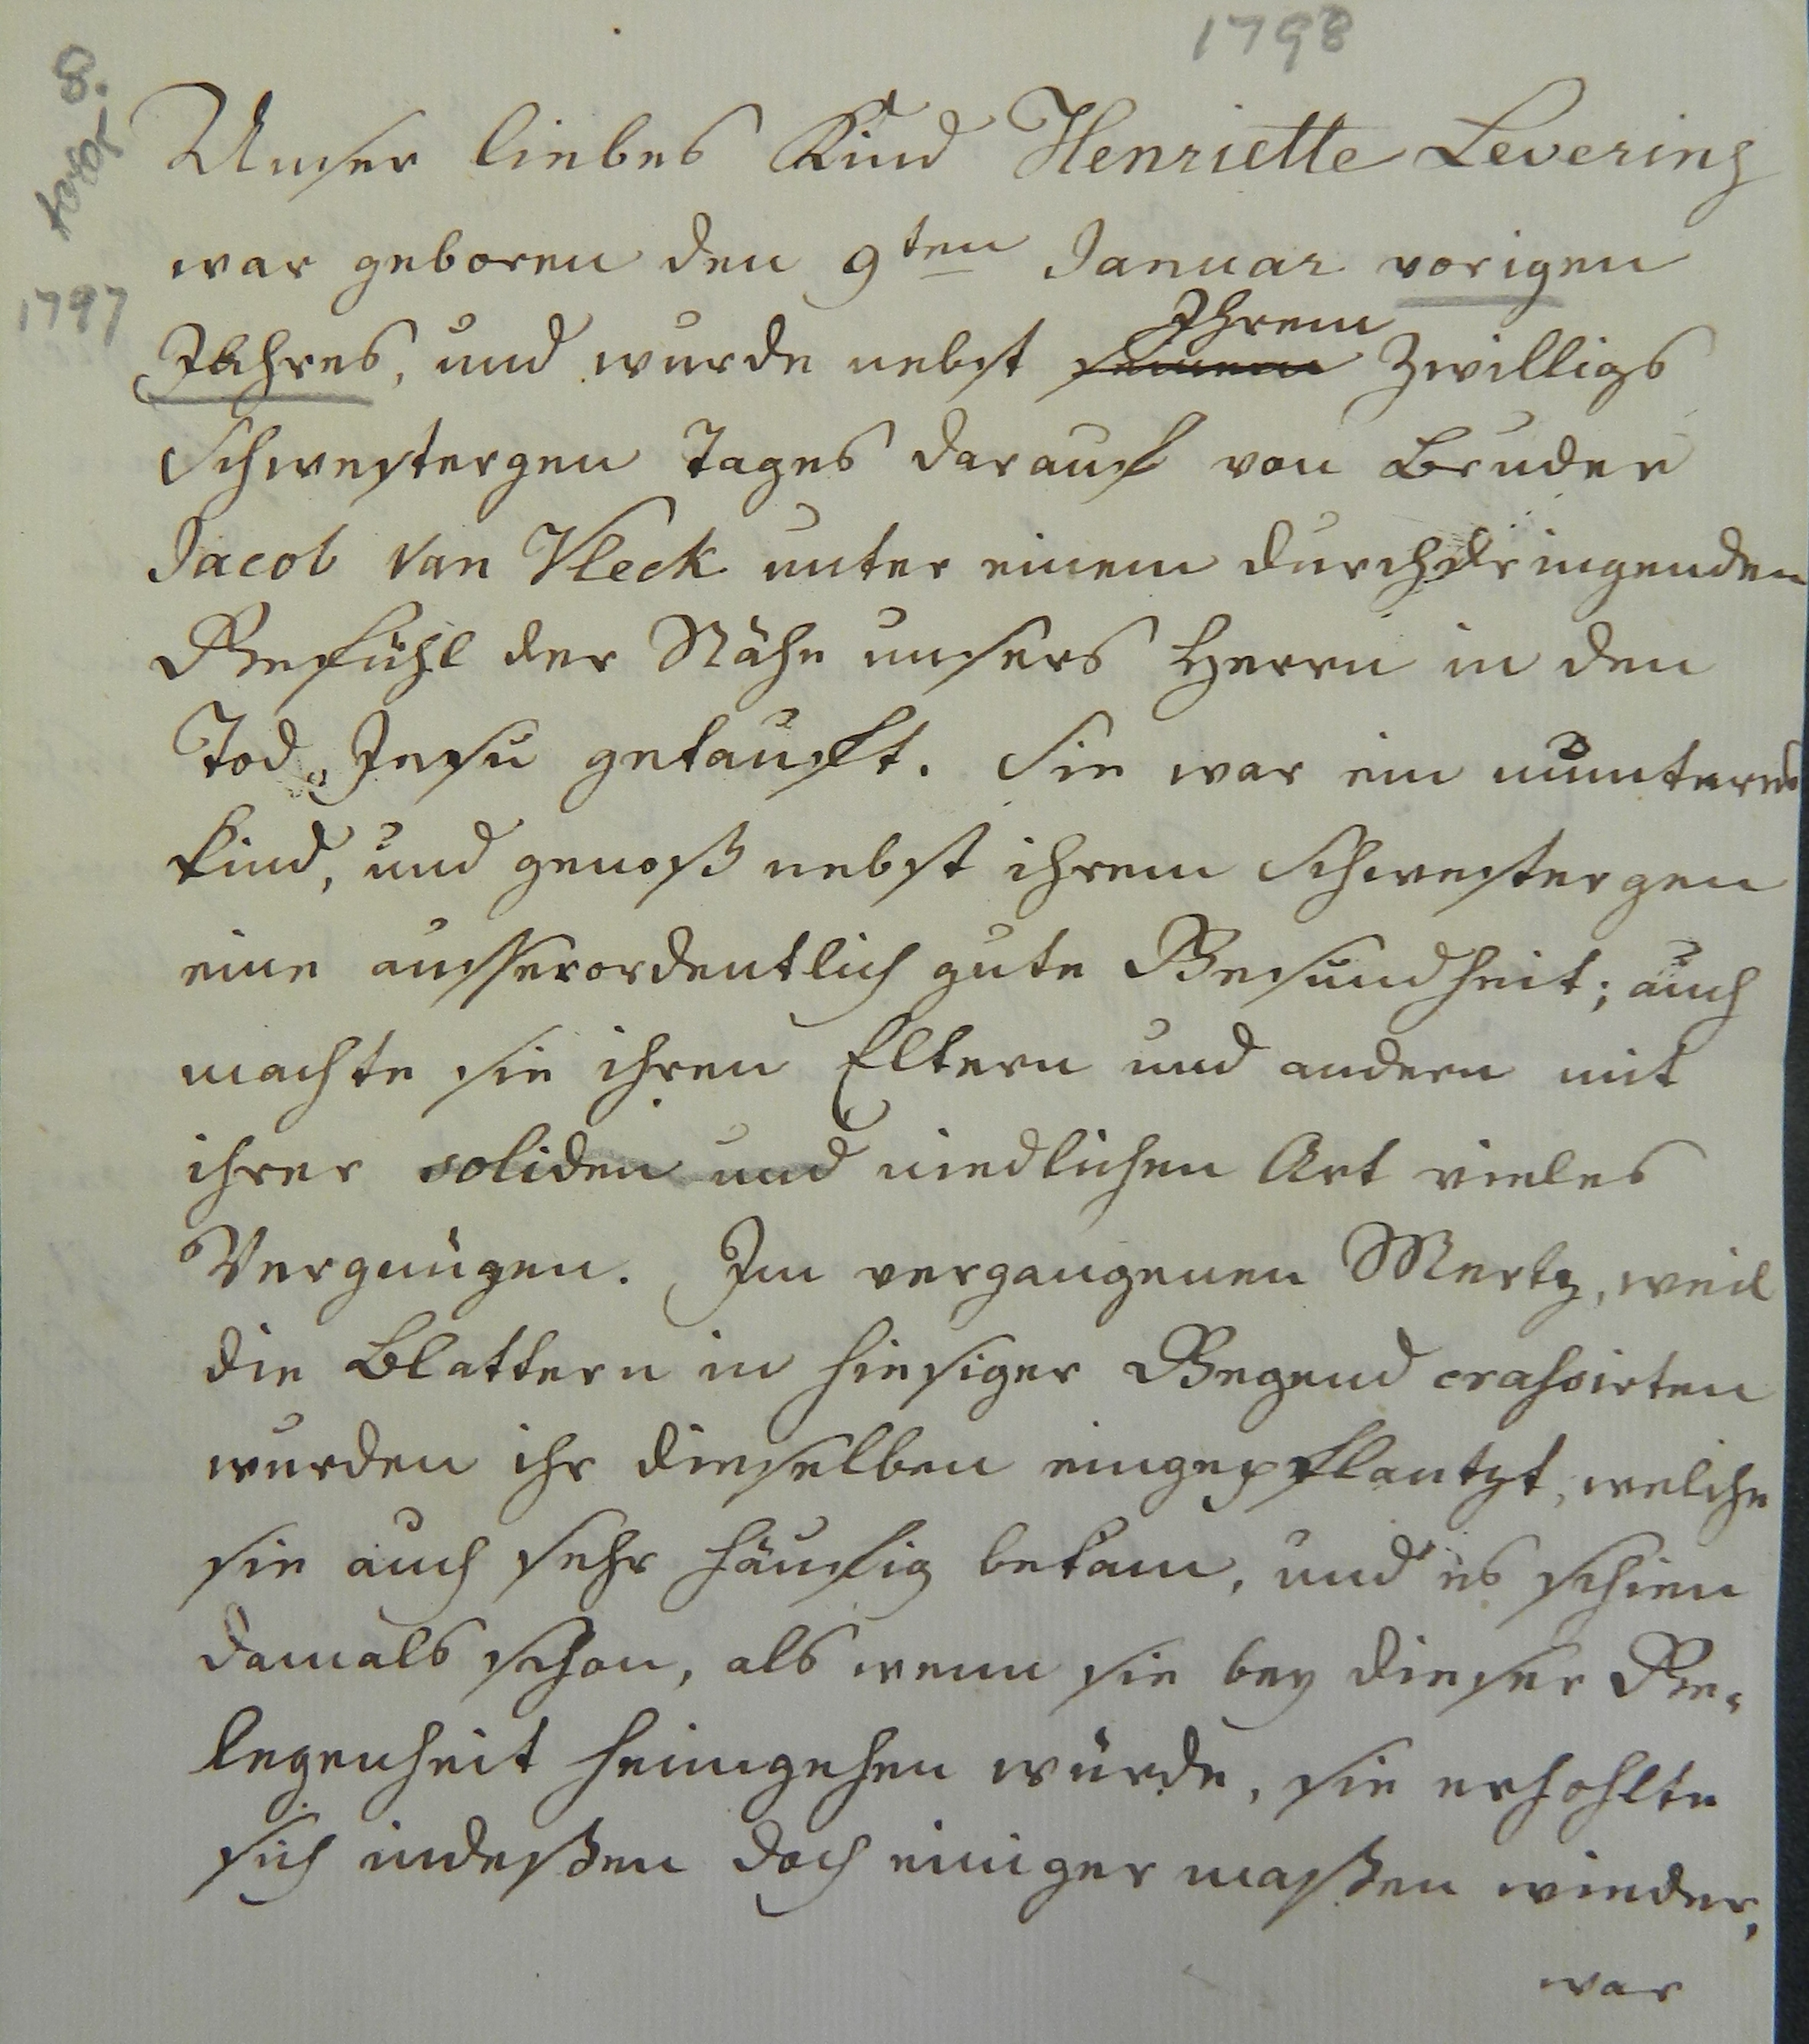 1798
8.
1797
Unser liebes Kind Henriette Levering
war geboren den 9ten Januar vorigen
Jahres, und wurde nebst seinem Ihrem Zwilligs
Schwestergen Tages darauf von Bruder
Jacob van Vleck unter einem durchdringenden
Gefühl der Nähe unsers Herrn in den
Tod Jesu getauft. Sie war ein munteres
Kind, und genoß nebst ihrem Schwestergen
eine ausserordentlich gute Gesundheit; auch
machte sie ihren Eltern und andern mit
ihrer soliden und niedlichen Art vieles
Vergnügen. Im vergangenen Mertz, weil
die Blattern in hiesiger Gegend crassirten
wurden ihr dieselben eingepflantzt, welche
sie auch sehr häufig bekam, und es schien
damals schon, als wenn sie bey dieser Ge-
legenheit heimgehen würde, sie erhohlte
sich indeßen doch einiger maßen wieder,
war